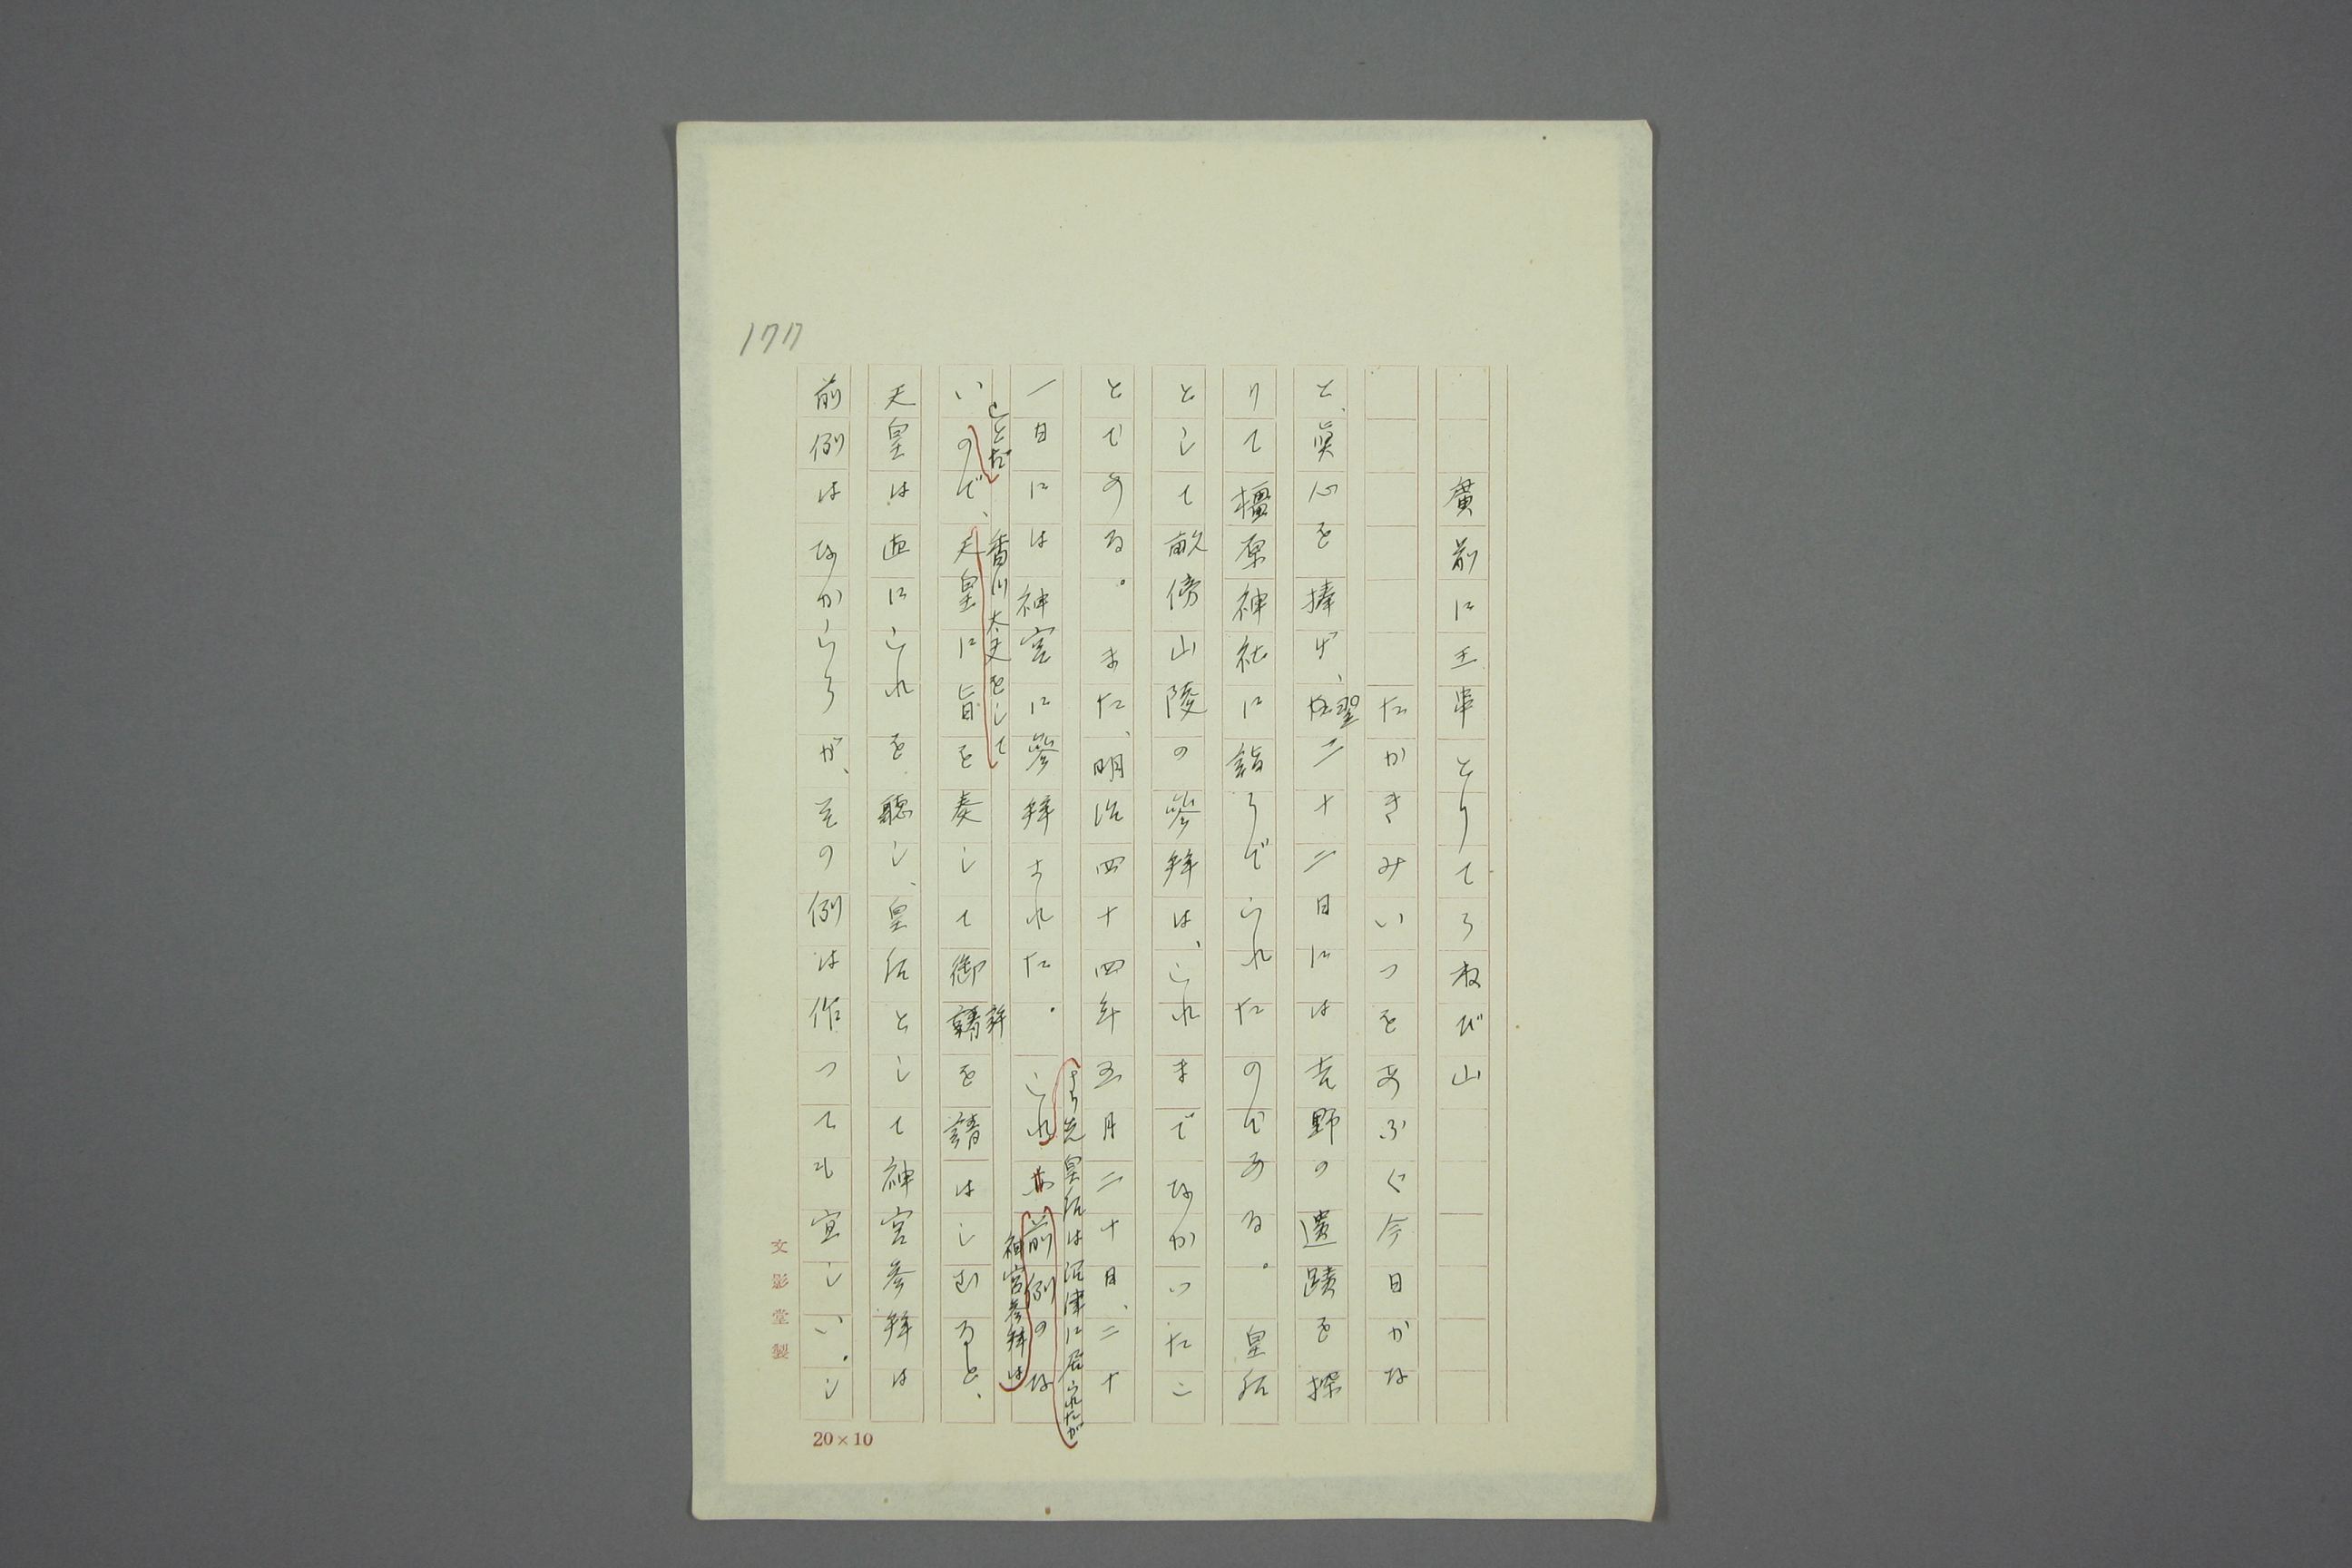 177
廣前に玉串とりてうねび山
たかきみいつをあふぐ今日かな
と、眞心を捧げ、翌二十二日には吉野の遺蹟を探
りて橿原神社に詣うでられたのである。皇后
として畝傍山陵の參拜は、これまでなかつたこ
とである。また、明治四十四年五月二十日、二十
一日には神宮に參拜された。これ前例のな
より先皇后は沼津に居られたが
神宮参拜は
いので、天皇に旨を奏して御許を請はしむると、
ことだ
香川大夫をして
天皇は直にこれを聽し、皇后として神宮参拜は
前例はなからうが、その例は作つても宜しい。し
文影堂製
20×10